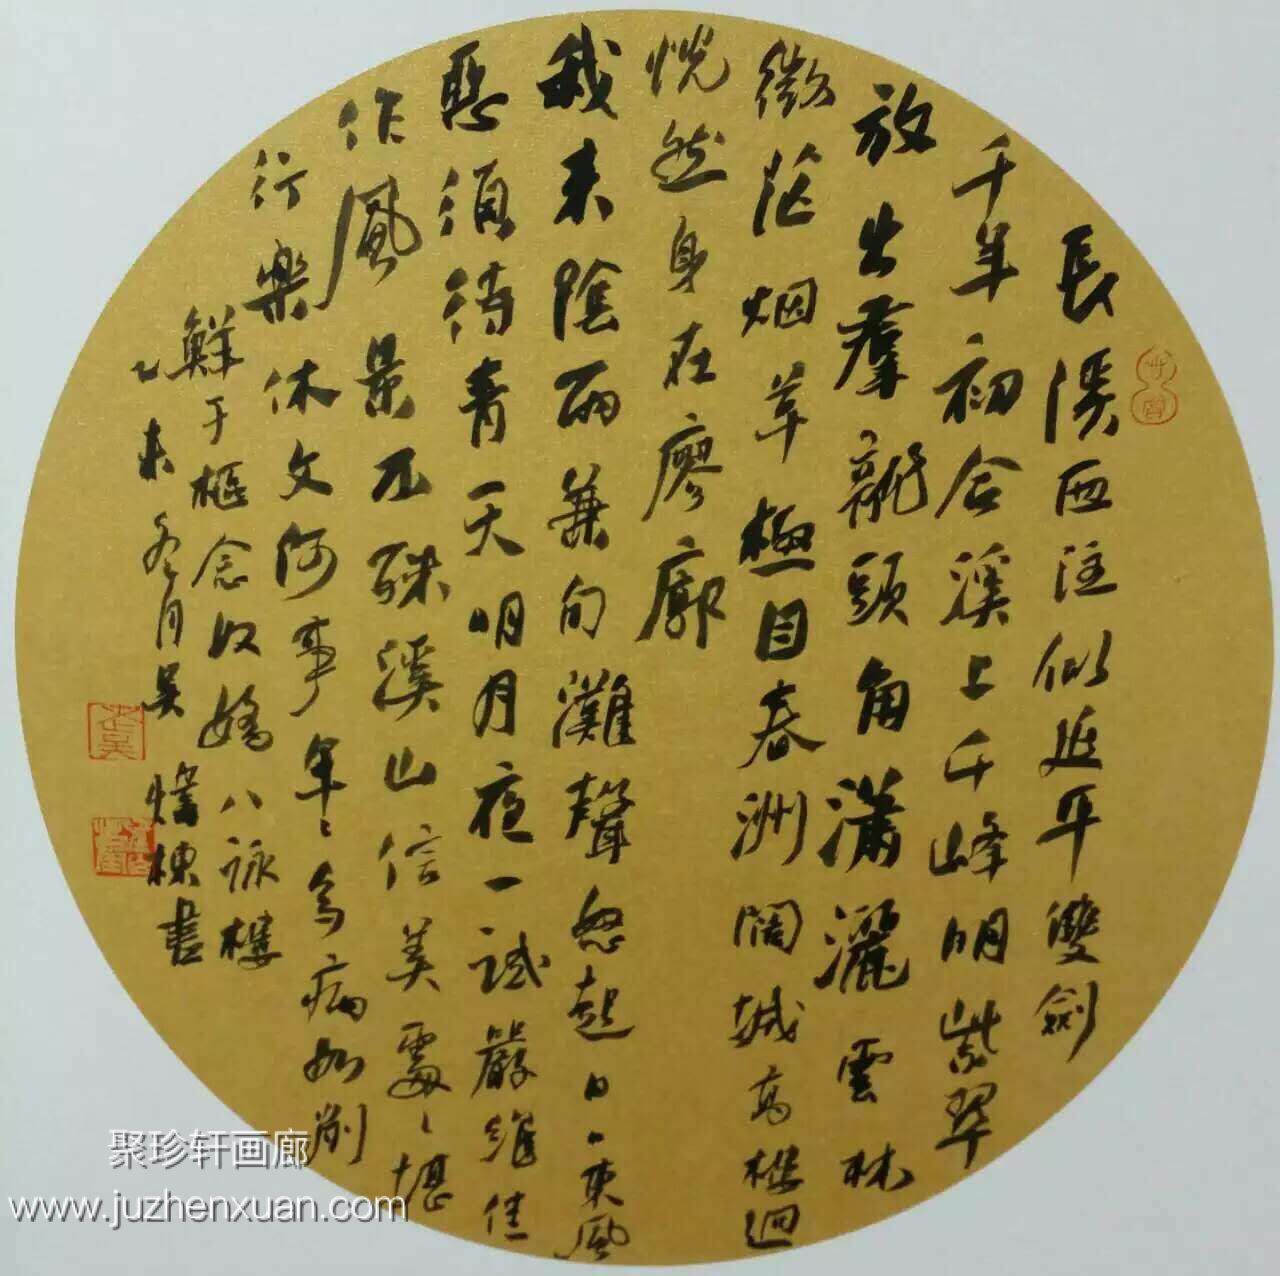 長溪西注似延平雙劍
千年初合溪上千峰明紫翠
放出羣龍頭角瀟灑雲林
微茫烟草極目春洲闊城高樓迥
恍然身在廖廓
我来陰雨兼旬灘聲怒起日〻東風
惡須待青天明月夜一試嚴維佳
作風景不殊溪山信美處〻堪
行樂休文何事年〻多病如削
鮮于樞念奴嬌八詠樓
乙未冬月吴棟書
聚珍轩画廊
www.juzhenxuan.com